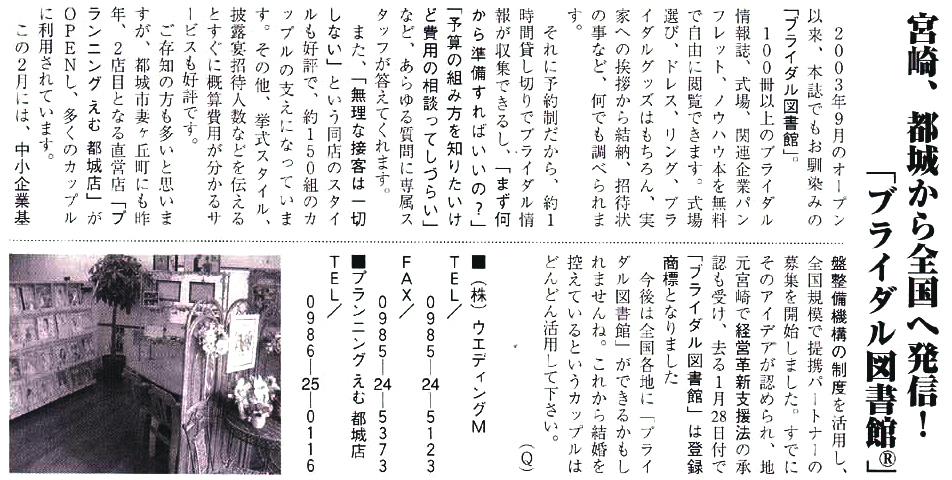 宮崎、都城から全国へ発信！
「ブライダル図書館」®
２００３年９月のオープン
以来、本誌でもお馴染みの
「ブライダル図書館」。
１００冊以上のブライダル
情報誌、式場、関連企業パン
フレット、ノウハウ本を無料
で自由に閲覧できます。式場
選び、ドレス、リング、ブラ
イダルグッズはもちろん、実
家への挨拶から結納、招待状
の事など、何でも調べられま
す。
それに予約制だから、約１
時間貸し切りでブライダル情
報が収集できるし、「まず何
から準備すればいいの？」
「予算の組み方を知りたいけ
ど費用の相談ってしづらい」
など、あらゆる質問に専属ス
タッフが答えてくれます。
また、「無理な接客は一切
しない」という同店のスタイ
ルも好評で、約１５０組のカ
ップルの支えになっていま
す。その他、挙式スタイル、
披露宴招待人数などを伝える
とすぐに概算費用が分かるサ
ービスも好評です。
ご存知の方も多いと思いま
すが、都城市妻ヶ丘町にも昨
年、２店目となる直営店「プ
ランニング えむ 都城店」が
ＯＰＥＮし、多くのカップル
に利用されています。
この２月には、中小企業基
盤整備機構の制度を活用し、
全国規模で提携パートナーの
募集を開始しました。すでに
そのアイデアが認められ、地
元宮崎で経営革新支援法の承
認も受け、去る１月28日付で
「ブライダル図書館」は登録
商標となりました
今後は全国各地に「ブライ
ダル図書館」ができるかもし
れませんね。これから結婚を
控えているというカップルは
どんどん活用して下さい。
（Ｑ）
■（株）ウエディングＭ
ＴＥＬ／
０９８５―24―５１２３
ＦＡＸ／
０９８５―24―５３７３
■プランニング えむ 都城店
ＴＥＬ／
０９８６―25―０１１６